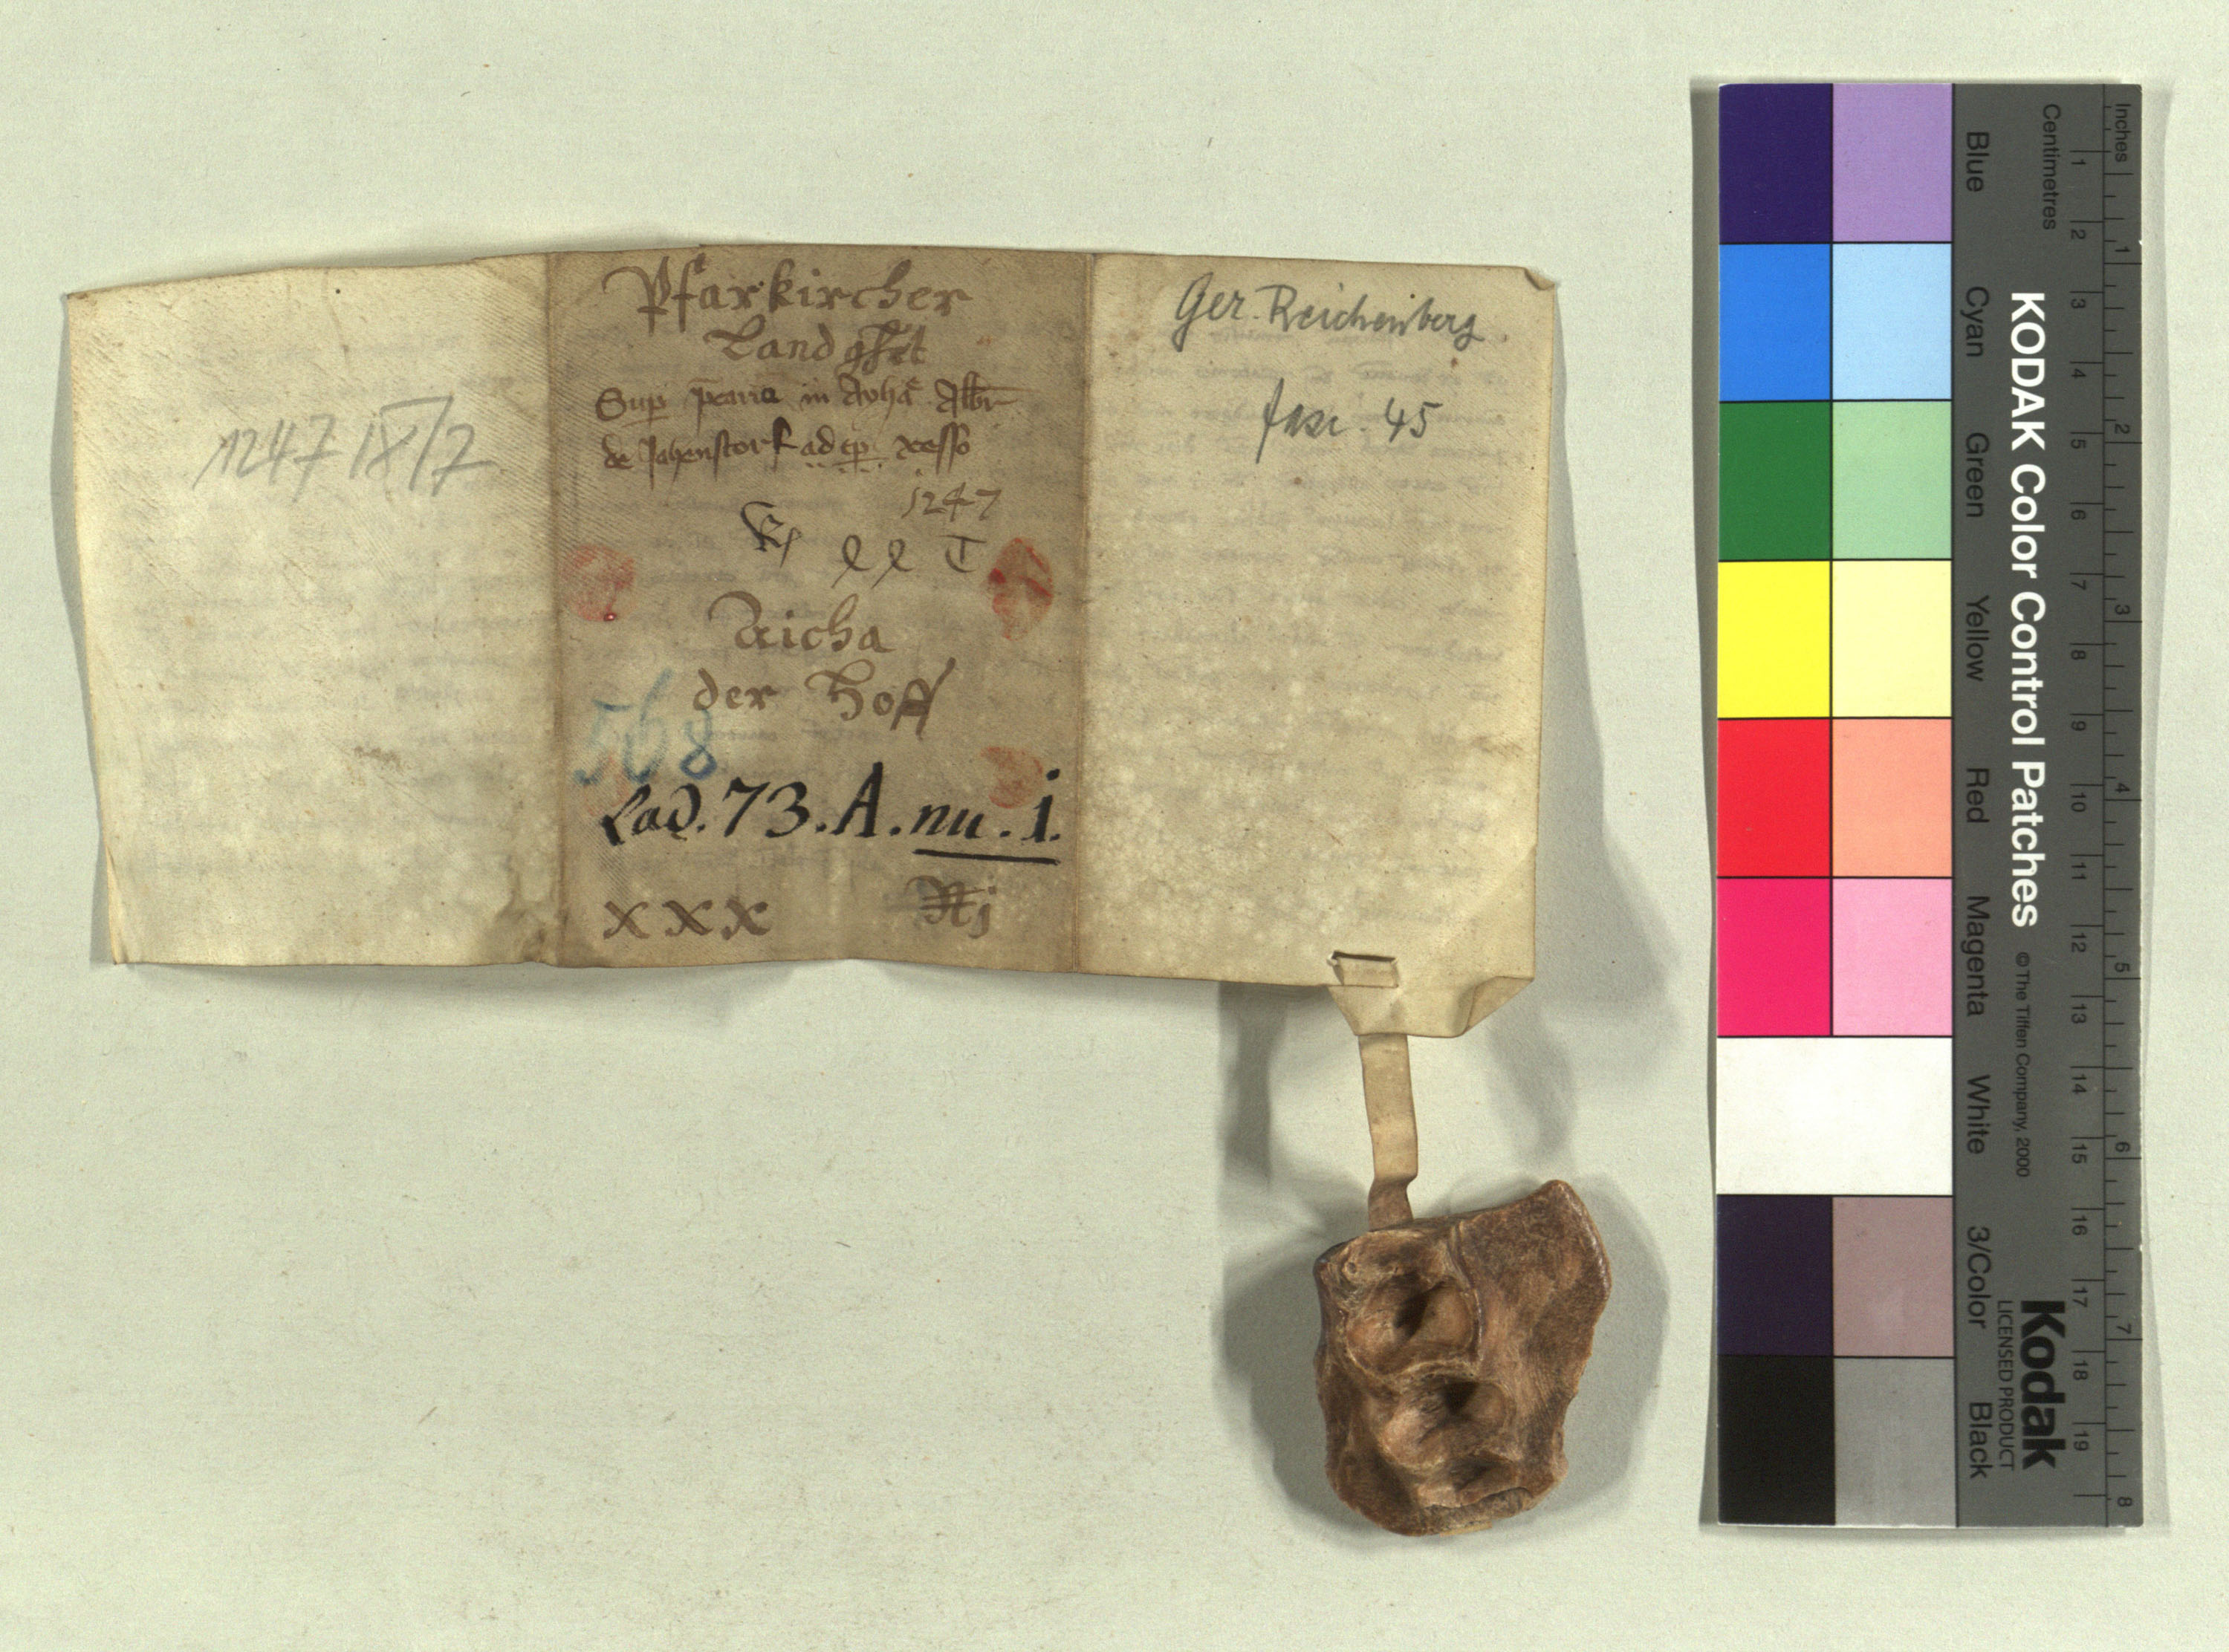 1247 IX/7
Pfarkircher
Landght
Sup in Ayha Albr
de Jahenstorf ad ep. resso
1247
Aicha
der Hoff
568
Lad. 73. A. nu. i.
x x x
Ger. Reichenberg
fasc. 45
Inches
Centimetres
1 2 3 4 5 6 7 8
1 2 3 4 5 6 7 8 9 10 11 12 13 14 15 16 17 18 19
KODAK Color Control Patches
© The Tiffen Company, 2000
Kodak
LICENSED PRODUCT
Blue Cyan Green Yellow Red Magenta White 3/Color Black